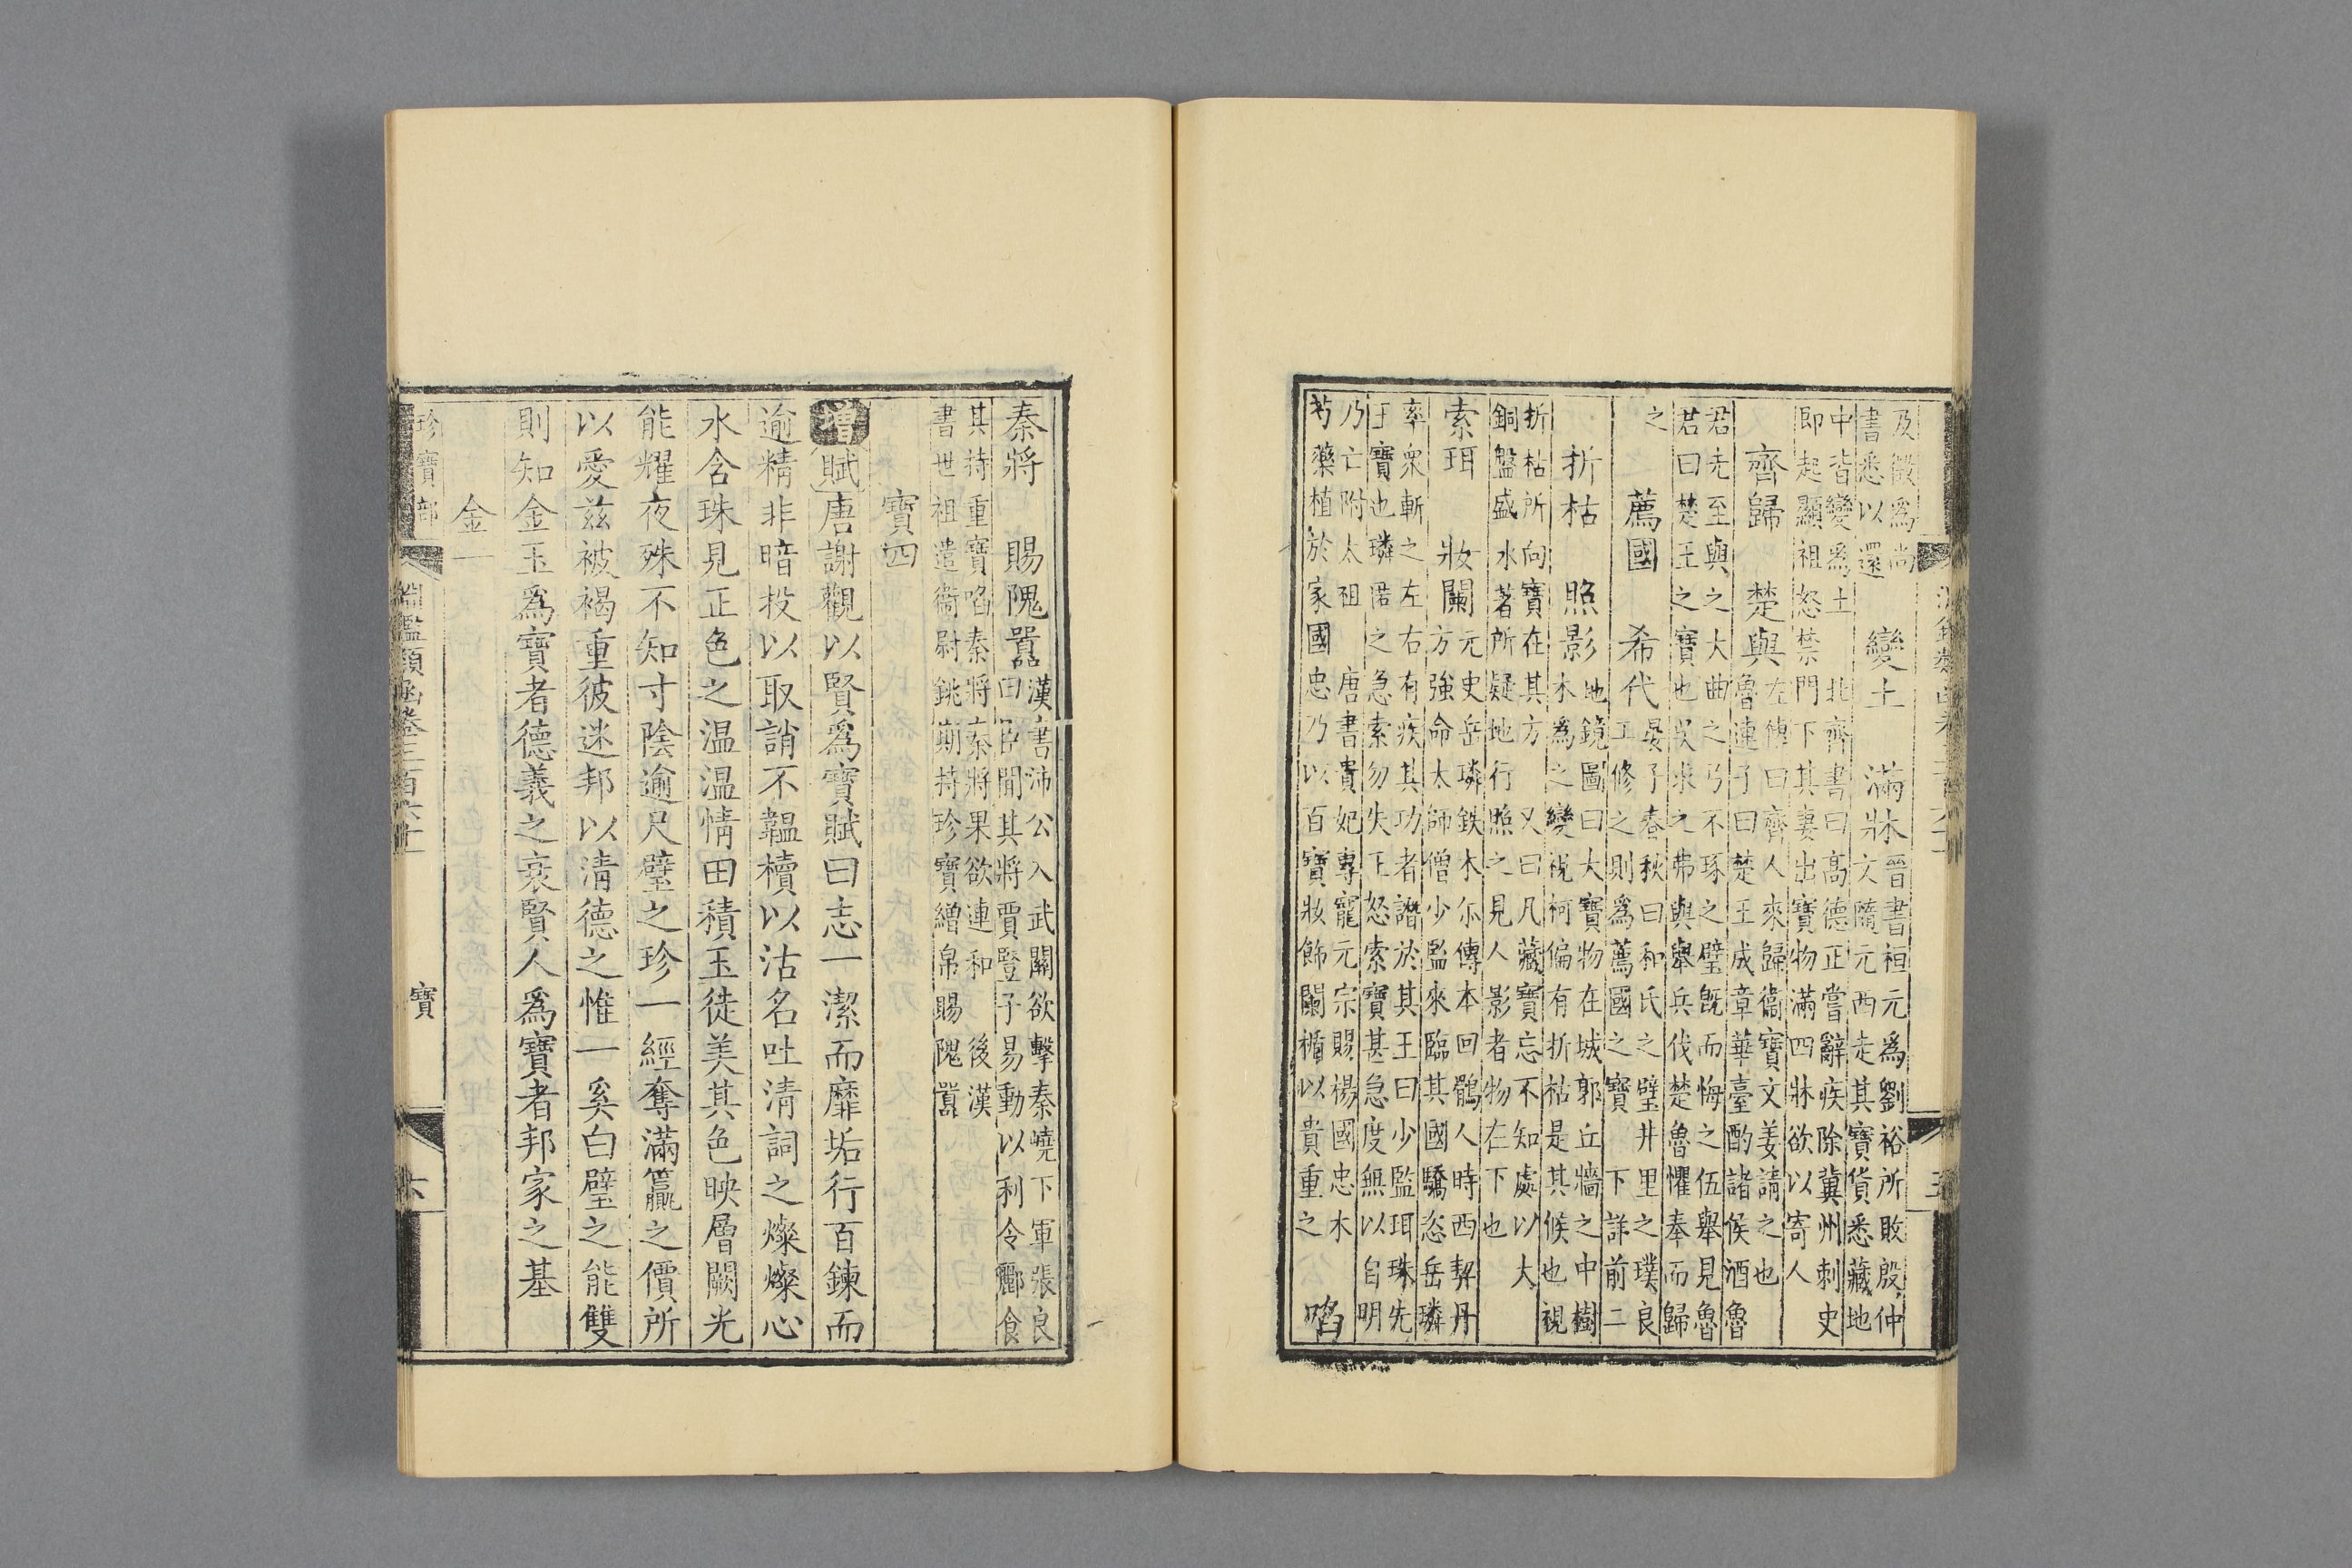 及徵為尚
書悉以還
變土
滿牀
晉書桓元為劉裕所敗殷仲
文隨元西走其寶貨悉藏地
中皆變為土
北齊書曰高德正嘗辭疾除冀州刺史
即起顯祖怒禁門下其妻出寶物滿四牀欲以寄人
齊歸
楚與
左傳曰齊人來歸衞寶文姜請之也
魯連子曰楚王成章華臺酌諸侯酒魯
君先至與之大曲之弓不琢之璧既而悔之伍舉見魯
君曰楚王之寶也吳求之弗與舉兵伐楚魯懼奉而歸
之
薦國
希代
晏子春秋曰和氏之璧井里之璞良
工修之則為薦國之寶
下詳前二
折枯
照影
地鏡圖曰大寶物在城郭丘牆之中樹
木為之變視柯偏有折枯是其候也視
折枯所向寶在其方
又曰凡藏寶忘不知處以大
銅盤盛水著所疑地行照之見人影者物在下也
索珥
妝闌
元史岳璘鉄木尓傳本回鶻人時西契丹
方強命太師僧少監來臨其國驕恣岳璘
率衆斬之左右有疾其功者譖於其王曰少監珥珠先
王寶也璘偌之急索勿失王怒索寶甚急度無以自明
乃亡附太祖
唐書貴妃專寵元宗賜楊國忠木
芍藥植於家國忠乃以百寶妝飾闌楯以貴重之
啗
秦將
賜隗囂
漢書沛公入武關欲擊秦嶢下軍張良
曰臣聞其將賈豎子易動以利令酈食
其持重寶啗秦將秦將果欲連和
後漢
書世祖遣衞尉銚期持珍寶繒帛賜隗囂
寶四
增賦唐謝觀以賢為寶賦曰志一潔而靡垢行百鍊而
逾精非暗投以取誚不韞櫝以沽名吐清詞之燦燦心
水含珠見正色之温温情田積玉徒美其色映層闕光
能耀夜殊不知寸陰逾尺璧之珍一經奪滿籯之價所
以愛茲被褐重彼迷邦以清德之惟一奚白璧之能雙
則知金玉為寶者德義之衰賢人為寶者邦家之基
金一
珍寶部
淵鑑類函卷三百六十一
寶
六